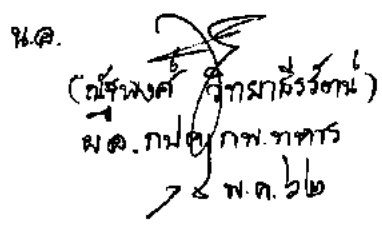 น.อ.
(ณัฐพงศ์ วิทยาธีรรัตน์)
ผอ.กปค.กพ.ทหาร
๙ พ.ค. ๖๒